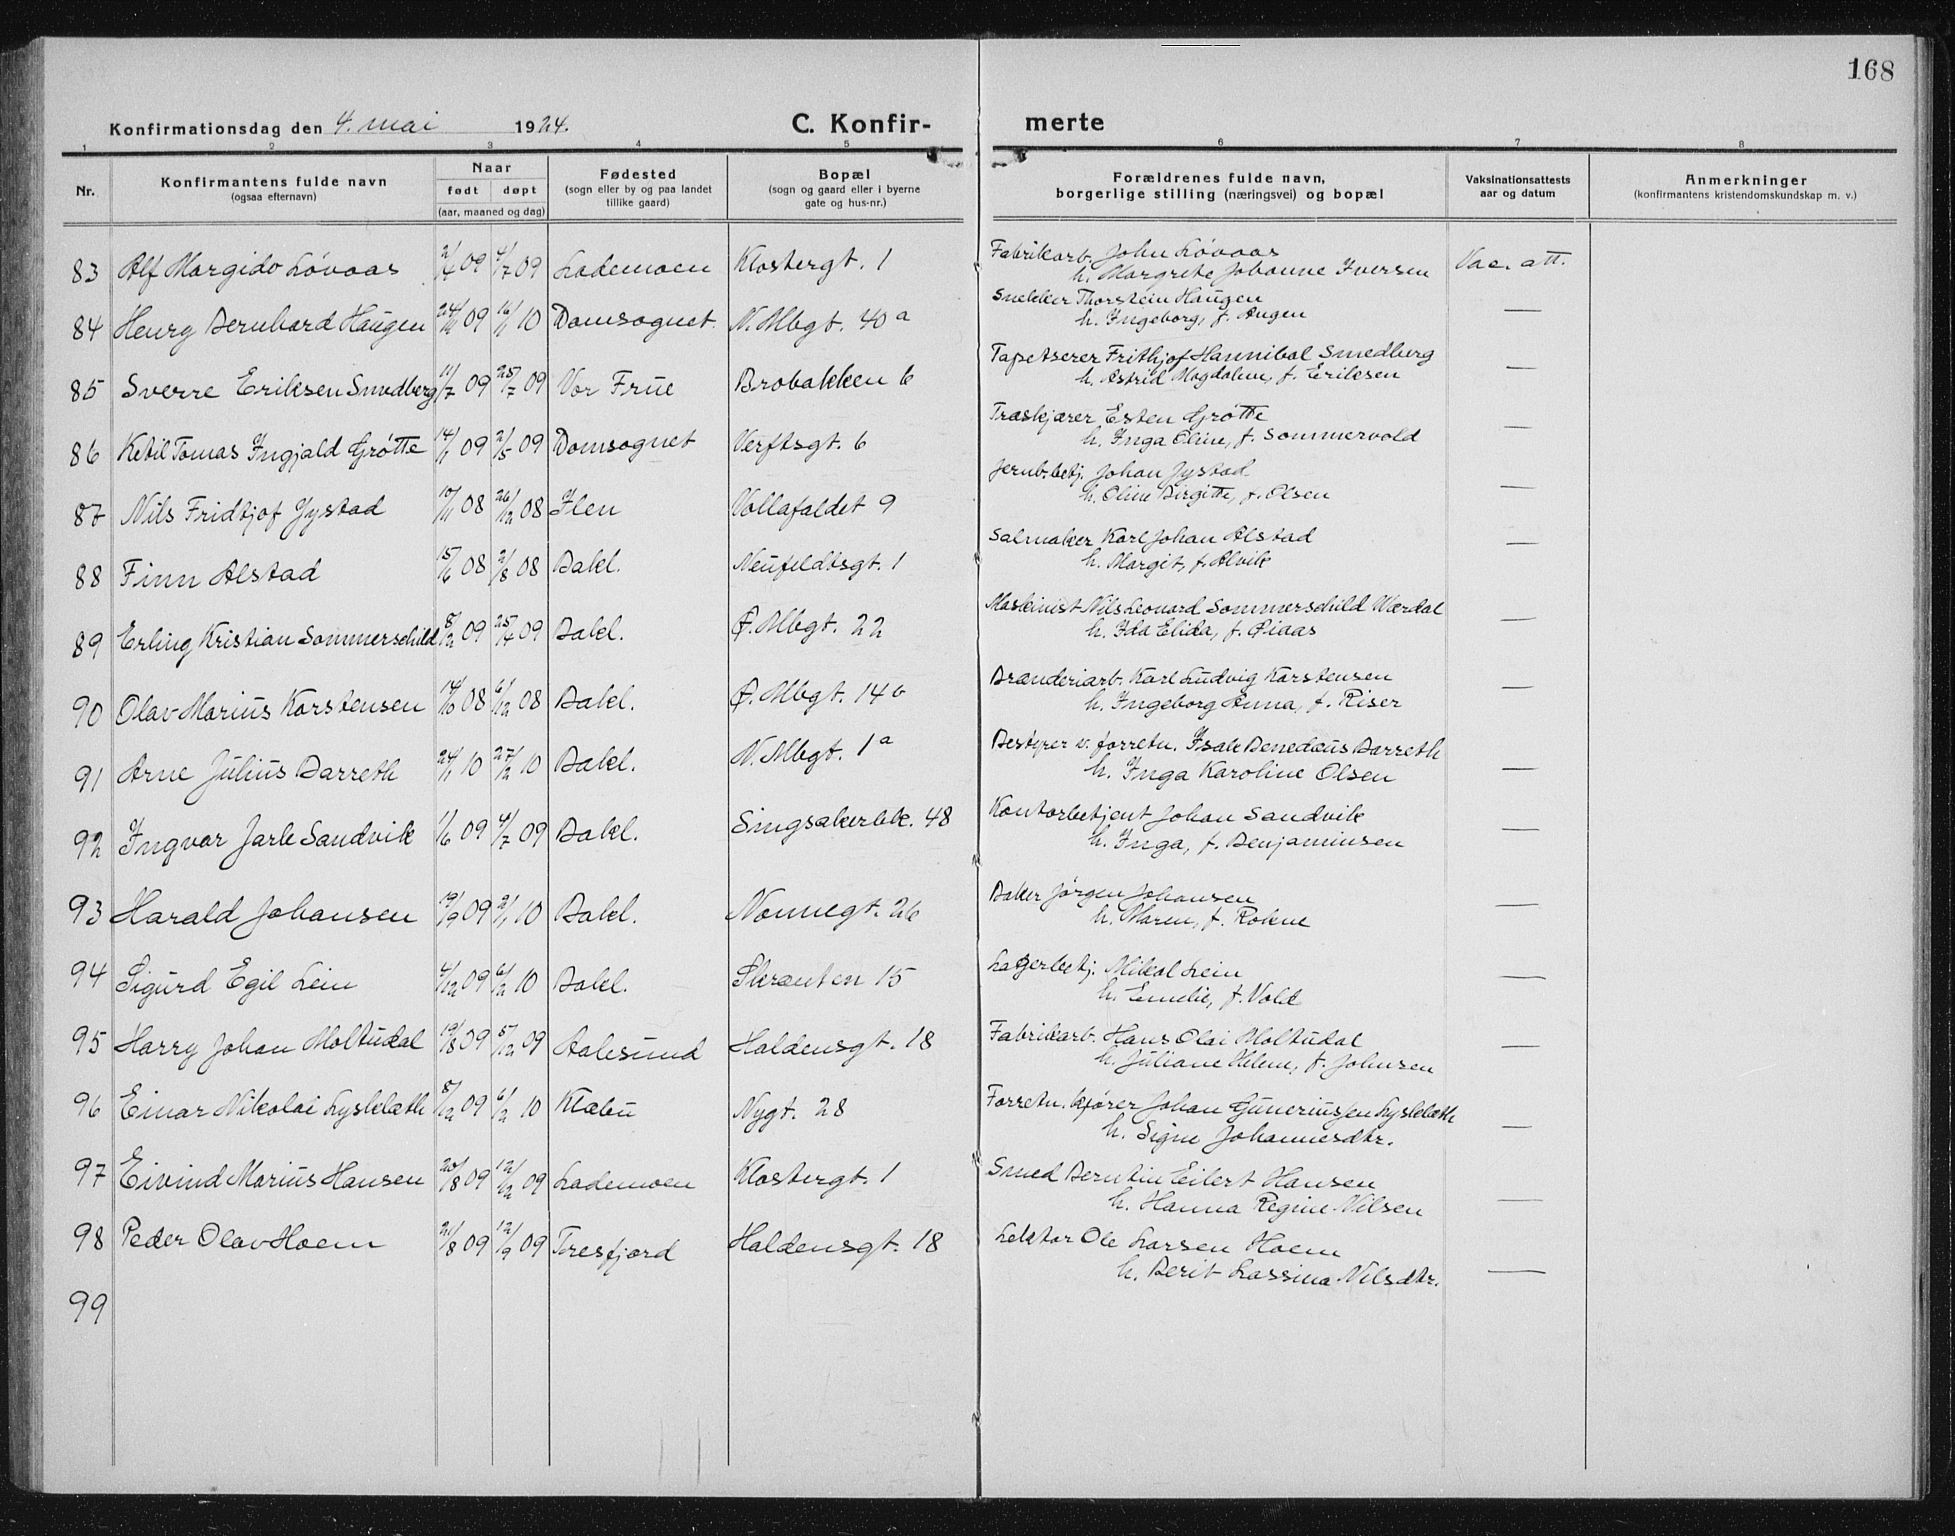 168
Konfirmationsdag den 4. mai 1924.
C. Konfir-merte
1 2 3 4 5 6 7 8
Nr.
Konfirmantens fulde navn
(ogsaa efternavn)
Naar
født døpt
(aar, maaned og dag)
Fødested
(sogn eller by og paa landet
tillike gaard)
Bopæl
(sogn og gaard eller i byerne
gate og hus-nr.)
Forældrenes fulde navn,
borgerlige stilling (næringsvei) og bopæl
Vaksinationsattests
aar og datum
Anmerkninger
(konfirmantens kristendomskundskap m. v.)
83 Alf Margido Løvaas 2/4 09 4/7 09 Lademoen Klostergt. 1 Fabrikarb. John Løvaas Vac. att.
h. Margrete Johanne Iversen
84 Henry Bernhard Haugen 09 10 Domsognet. N. Mbgt. 40 a Snekker Thorstein Haugen —
h. Ingeborg, f. Augen
85 Sverre Eriksen Smedberg 11/7 09 25/7 09 Vor Frue Brobakken 6 Tapetserer Frithjof Hannibal Smedberg —
h. Astrid Magdalene, f. Eriksen
86 Ketil Tomas Ingjald Grøtte 14/1 09 2/5 09 Domsognet Verftsgt. 6 Træskjærer Esten Grøtte —
h. Inga Oline, f. Sommervold
87 Nils Fridtjof Jystad 10/11 08 26/12 08 Ilen Vollafaldet 9 Jernb.betj. Johan Jystad —
h. Oline Birgitte, f. Olsen
88 Finn Alstad 15/6 08 2/8 08 Bakl. Neufeldtsgt. 1 Salmaker Karl Johan Alstad —
h. Margit, f. Alvik
89 Erling Kristian Sommerschild 8/2 09 25/4 09 Bakl. Ø. Mbgt. 22 Maskinist Nils Leonard Sommerschild Værdal —
h. Ida Elida, f. Øiaas
90 Olav Marius Karstensen 14/10 08 6/12 08 Bakl. Ø. Mbgt. 14 b Brænderiarb. Karl Ludvig Karstensen —
h. Ingeborg Anna, f. Riser
91 Arne Julius Barreth 24/1 10 27/2 10 Bakl. N. Mbgt. 1 a Bestyrer v. forretn. Isak Benedeus Barreth —
h. Inga Karoline Olsen
92 Ingvar Jarle Sandvik 1/6 09 4/7 09 Bakl. Singsakerbk. 48 Kontorbetjent Johan Sandvik —
h. Inga, f. Benjaminsen
93 Harald Johansen 19/9 09 2/1 10 Bakl. Nonnegt. 26 Baker Jørgen Johansen —
h. Maren, f. Rokne
94 Sigurd Egil Lein 4/12 09 6/2 10 Bakl. Skrænten 15 Lagerbetj. Mikal Lein —
h. Emelie, f. Vold
95 Harry Johan Moltudal 19/8 09 5/12 09 Aalesund Haldensgt. 18 Fabrikarb. Hans Olai Moltudal —
h. Juliane Helene, f. Johnsen
96 Einar Nikolai Lysklæth 8/12 09 6/2 10 Klæbu Nygt. 28 Forretn. kfører Johan Gunerius Jen Lysklæth —
h. Signe Johannesdtr.
97 Eivind Marius Hansen 20/8 09 12/12 09 Lademoen Klostergt. 1 Smed Berntin Eilert Hansen —
h. Hanna Regine Nilsen
98 Peder Olav Hoem 21/8 09 12/9 09 Tresfjord Haldensgt. 18 Lektor Ole Larsen Hoem —
h. Berit Lassina Nilsdtr.
99